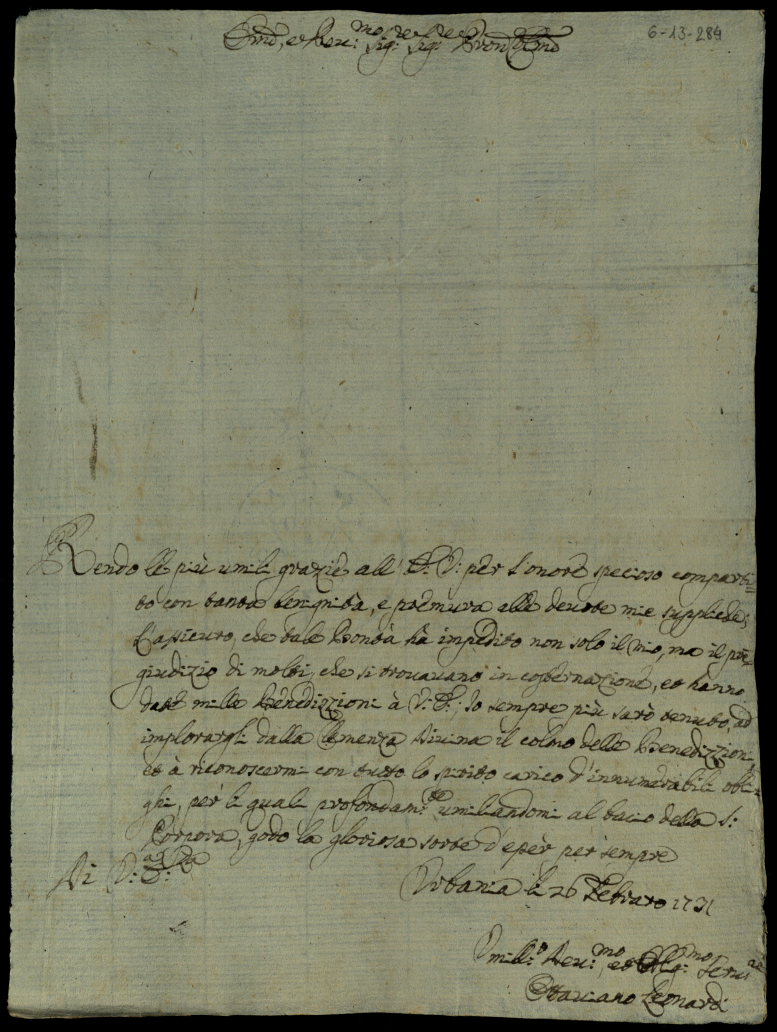 Em̃o, et Reu:mo Sig:re Sig:re Pron Col̃mo
6-13-284
Rendo le più umili grazie all' E: V: per l'onore specioso comparti=
to con tanta benignità, e premura alle deuote mie suppliche;
L'assicuro, che tale bontà hà impedito non solo il mio, ma il pre=
giudizio di molti, che si trouauano in costernazione, et hanno
date mille benedizzioni à V: E: Io sempre più sarò tenuto, ad
implorargli dalla Clemenza Diuina il colmo delle Benedizzioni,
et à riconoscermi con tutto lo spirito carico d'innumerabili obli=
ghi, per li quali profondam:te umiliandomi al bacio della S:
Porpora, godo la gloriosa sorte d'esser per sempre
Di V: E:
Urbania li 26 Febraro 1731
Umill:o Deu:mo, et Oblig:mo Seru:re
Ottaviano Leonardi